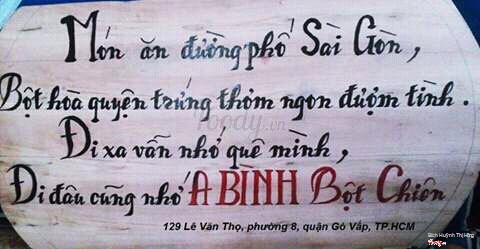 Món ăn đường phố Sài Gòn,
Bột hòa quyện trứng thơm ngon đượm tình.
Đi xa vẫn nhớ quê mình,
Đi đâu cũng nhớ A BÌNH Bột Chiên
129 Lê Văn Thọ, phường 8, quận Gò Vấp, TP.HCM
Foody.vn
Bích Huỳnh Thị Hồng